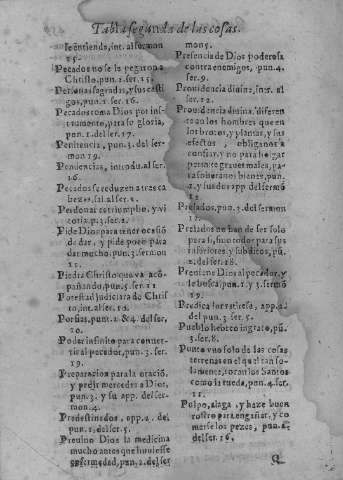 Tabla segunda de las cosas.
se entienda, int. al sermon
15.
Pecados no se le pegaron a
Christo, pun. 1. ser. 15.
Personas sagradas, y sus casti
gos, pun. 1. ser. 16.
Pecados toma Dios por ins-
trumento, para su gloria,
pun. 1. del ser. 17.
Penitencia, pun. 3. del ser-
mon 19.
Penitencias, introdu. al ser.
16.
Pecados se reduzen a tres ca
beças, sal. al ser. 2.
Perdonar es triumpho, y vi
toria, p. 3. ser. 2.
Pide Dios para tener ocasiō
de dar, y pide poco para
dar mucho, pun. 3. sermō
11.
Piedra Christo que va acō
pañando, pun. 5. ser. 11
Potestad judiciara de Chris
to, int. al ser. 10.
Porfias, punt. 2. &4. del ser,
20.
Poder infinito para conuer-
tir al pecador, pun. 3. ser.
19.
Preparacion para la oració,
y pedir mercedes a Dios,
pun. 3. y su app. del ser-
mon. 4.
Predestinados, app. 2. del
pun. 1. del ser. 5.
Preuino Dios la medicina
mucho antes que huuiesse
enfermedad, pun. 2. del ser
mon 5.
Presencia de Dios poderosa
contra enemigos, pun. 4.
ser. 9.
Prouidencia diuina, int. al
ser. 12.
Prouidencia diuina, diferen
te a los hombres que en
los brutos, y plantas, y sus
efectos, obliganos a
confiar, y no para holgar
permite graues males, pa-
ra soberanos bienes, pun.
2. y sus dos app. del sermō
12.
Prelados, pun. 3. del sermon
17.
Prelados no han de ser solo
para si, sino todo para sus
inferiores y subditos, pū.
2. del ser. 18.
Preuiene Dios al pecador, y
le busca, pun. 1. y 3. sermō
19.
Predica lo resistese, app. al
del pun. 3. ser. 5.
Pueblo hebreo ingrato, pū.
3. ser. 8.
Punto vno solo de las cosas
terrenas en el que tan so-
lamente, tocan los Santos
como la rueda, pun. 4. ser.
11.
Pulpo, alaga, y haze buen
rostro para engañar, y co
merse los pezes, pun. 4.
del ser. 16.